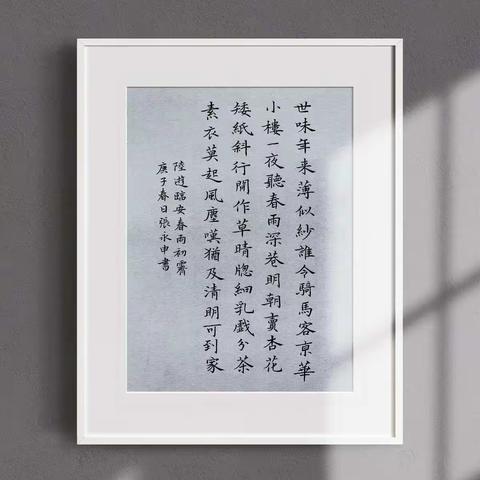 世味年来薄似紗誰令騎馬客京華
小樓一夜聽春雨深巷明朝賣杏花
矮紙斜行閒作草晴牕細乳戲分茶
素衣莫起風塵嘆猶及清明可到家
陸遊臨安春雨初霽
庚子春日張永申書